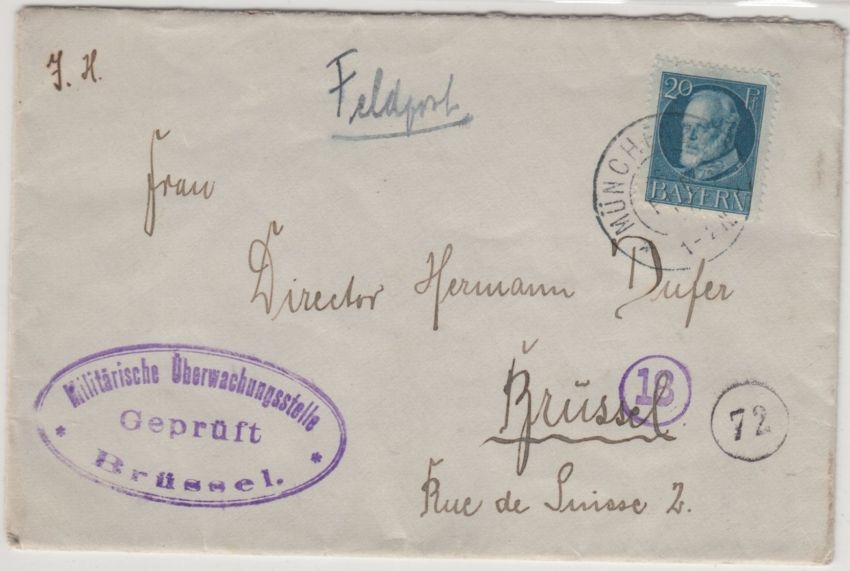 J. H.
Feldpost
20 Pf
BAYERN
MÜNCHE
1-2 N
Frau
Director Hermann Dufer
Brüssel
Rue de Suisse 2.
Militärische Überwachungsstelle
Geprüft
* Brüssel. *
18
72